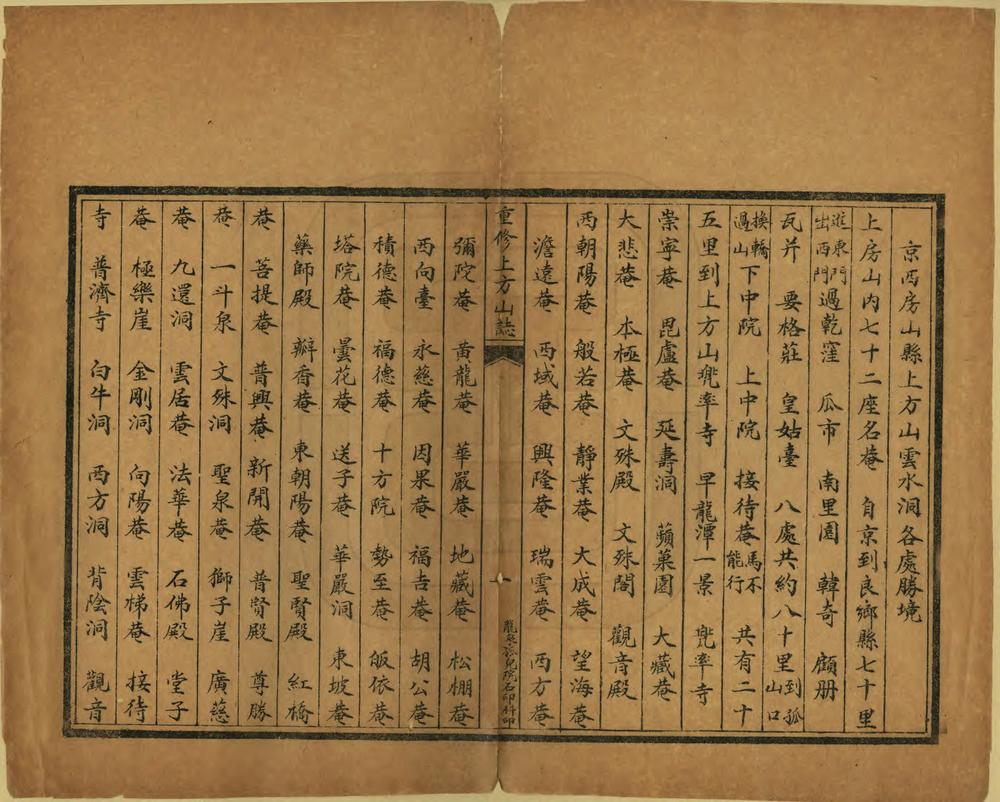 京西房山縣上方山雲水洞各處勝境
上房山内七十二座名菴　自京到良鄉縣七十里
進東門出西門過乾窪　瓜市　南里園　韓奇　顧册
瓦井　要格莊　皇姑臺　八處共約八十里到孤山口
換轎過山下中院　上中院　接待菴馬不能行　共有二十
五里到上方山兜率寺　旱龍潭一景　兜率寺
崇寧菴　毘盧菴　延壽洞　蘋菓園　大藏菴
大悲菴　本極菴　文殊殿　文殊閣　觀音殿
西朝陽菴　般若菴　靜業菴　大成菴　望海菴
澹遠菴　西域菴　興隆菴　瑞雲菴　西方菴
重修上方山誌　一　龍泉孤兒院石印科印
彌陀菴　黄龍菴　華嚴菴　地藏菴　松棚菴
西向臺　永慈菴　因果菴　福吉菴　胡公菴
積德菴　福德菴　十方院　勢至菴　皈依菴
塔院菴　曇花菴　送子菴　華嚴洞　東坡菴
藥師殿　瓣香菴　東朝陽菴　聖賢殿　紅橋
菴　菩提菴　普興菴　新開菴　普賢殿　尊勝
菴　一斗泉　文殊洞　聖泉菴　獅子崖　廣慈
菴　九還洞　雲居菴　法華菴　石佛殿　堂子
菴　極樂崖　金剛洞　向陽菴　雲梯菴　接待
寺　普濟寺　白牛洞　西方洞　背陰洞　觀音